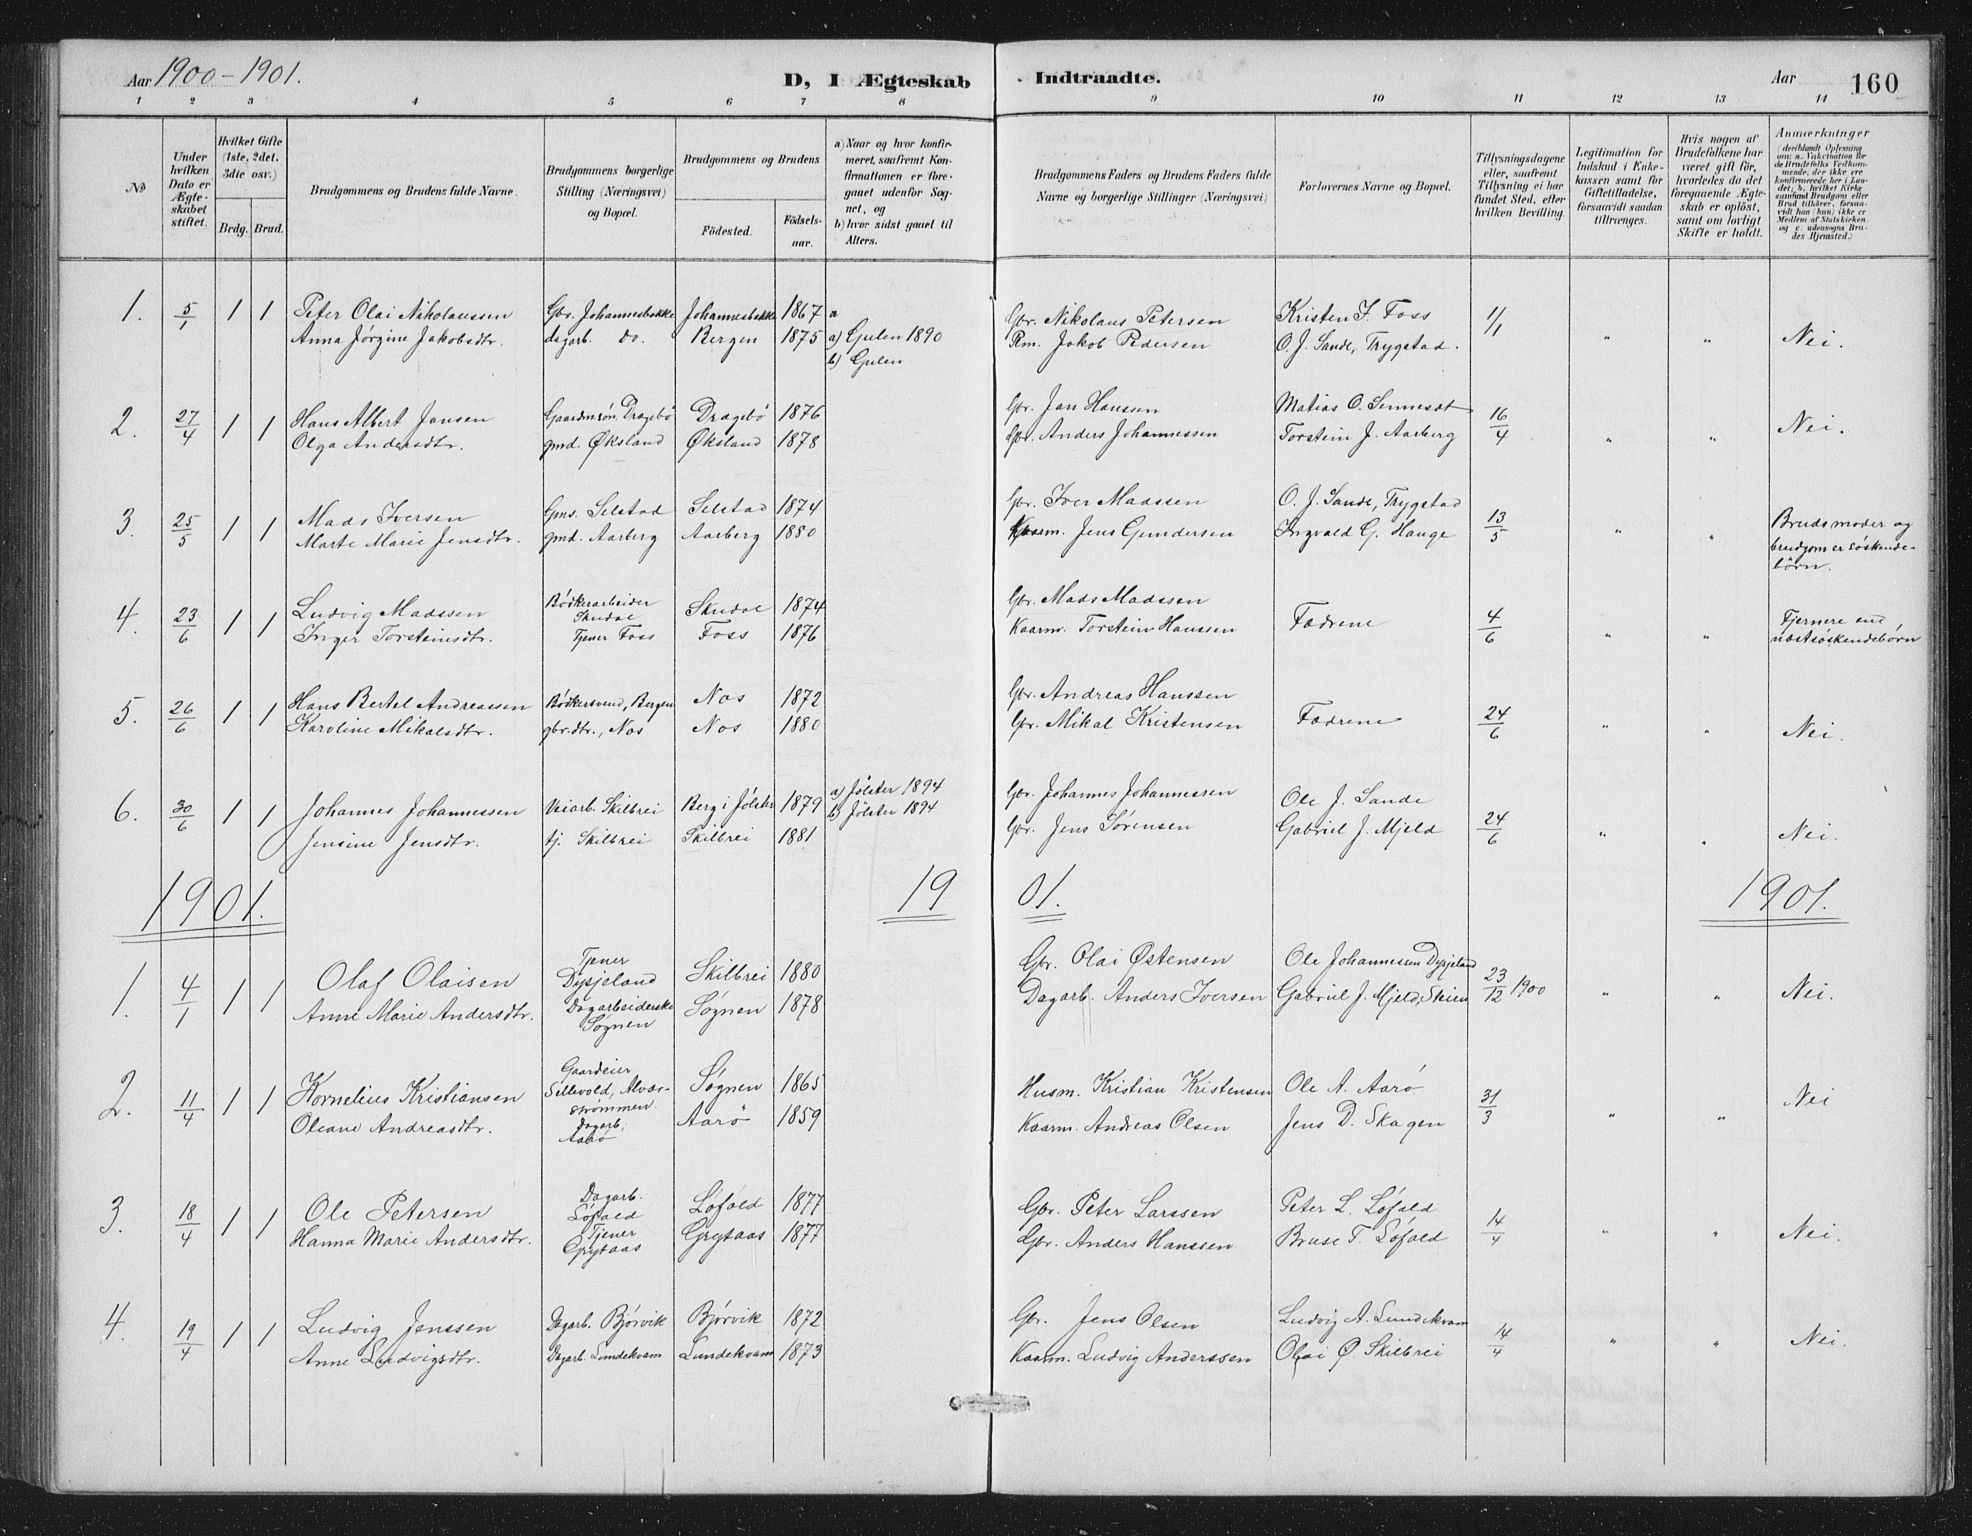 Aar 1900-1901.
D, I Ægteskab
Indtraadte.
Aar
160
1 2 3 4 5 6 7 8 9 10 11 12 13 14
№
Under hvilken Dato er Ægteskabet stiftet.
Hvilket Gifte (1ste, 2det, 3die osv.)
Brdg. Brud.
Brudgommens og Brudens fulde Navne.
Brudgommens borgerlige Stilling (Næringsvei) og Bopæl.
Brudgommens og Brudens
Födested.
Födselsaar.
a) Naar og hvor konfirmeret, saafremt Konfirmationen er foregaaet udenfor Sognet, og
b) hvor sidst gaaet til Alters.
Brudgommens Faders og Brudens Faders fulde Navne og borgerlige Stillinger (Næringsvei)
Forlovernes Navne og Bopæl.
Tillysningsdagene eller, saafremt Tillysning ei har fundet Sted, efter hvilken Bevilling.
Legitimation for Indskud i Enkekassen samt for Giftetilladelse, forsaavidt saadan tiltrænges.
Hvis nogen af Brudefolkene har været gift før, hvorledes da det foregaaende Ægteskab er oplöst, samt om lovligt Skifte er holdt.
Anmærkninger (deriblandt Oplysning om: a. Vakcination for de Brudefolks Vedkommende, der ikke ere konfirmerede her i Landet; b. hvilket Kirkesamfund Brudgom eller Brud tilhörer, forsaavidt han (hun) ikke er Medlem af Statskirken, og c. udensogns Brudes Hjemsted.)
1. 5/1 1 1 Peter Olai Nikolaussen Gbr. Johannesbakke Johannesbakke 1867 a Gbr. Nikolaus Petersen Kristen J. Foss 1/1 " " Nei.
Anna Jørgine Jakobsdtr. dagarb. do. Bergen 1875 a) Gulen 1890 Pm. Jakob Pedersen O. J. Sande, Trygstad.
b) Gulen
2. 27/4 1 1 Hans Albert Jansen Gaardmsøn, Dragebö Dragebö 1876 Gbr. Jan Hansen Matias O. Sennesdt 16/4 " " Nei.
Olga Andersdtr. gmd. Øksland Øksland 1878 Gbr. Anders Johannessen Torstein J. Aarberg
3. 25/5 1 1 Mads Iversen Gms. Selstad Selstad 1874 Gbr. Iver Madssen O. J. Sande, Trygstad 13/5 " " Brudsmoder og
Marte Marie Jensdtr. gmd. Aarberg Aarberg 1880 Kaarm. Jens Gundersen Ingvald G. Hauge brudgom er söskende-
börn.
4. 23/6 1 1 Ludvig Madssen Bödkerarbeider Skudal Skudal 1874 Gbr. Mads Madssen Fædrene 4/6 " " Fjernere end
Inger Torsteinsdtr. Tjener Foss Foss 1876 Kaarm. Torstein Hanssen næstsöskendebörn
5. 26/6 1 1 Hans Bertel Andreassen Bödkersvend, Bergen Nos 1872 Gbr. Andreas Hanssen Fædrene 24/6 " " Nei.
Karoline Mikalsdtr. gbr.dtr., Nos Nos 1880 Gbr. Mikal Kristensen
6. 30/6 1 1 Johannes Johannessen Veiarb. Skilbrei Berg i Jölster 1879 a) Jölster 1894 b) Jölster 1894 Gbr. Johannes Johannessen Ole J. Sande 24/6 " " Nei.
Jensine Jensdtr. tj. Skilbrei Skilbrei 1881 Gbr. Jens Sörensen Gabriel J. Mjeld
1901. 1901. 1901.
1. 4/1 1 1 Olaf Olaisen Tjener Dysjeland Skilbrei 1880 Gbr. Olai Østensen Ole Johannessen Dysjeland 23/12 1900 " " Nei.
Anne Marie Andersdtr. Dagarbeiderske Søgnen Søgnen 1878 Dagarb. Anders Iversen Gabriel J. Mjeld, Skien
2. 11/4 1 1 Kornelius Kristiansen Gaardeier Sellevold, Alvær-strømmen Søgnen 1865 Husm. Kristian Kristensen Ole A. Aarö 31/3 " " Nei
Oleane Andreasdtr. Dagarb. Aarö Aarö 1859 Kaarm. Andreas Olsen Jens D. Skagen
3. 18/4 1 1 Ole Petersen Dagarb. Löfald Löfald 1877 Gbr. Peter Larssen Peter L. Löfald 14/4 " " Nei.
Hanna Marie Andersdtr. Tjener Grytaas Grytaas 1877 Gbr. Anders Hanssen Bruse T. Löfald
4. 19/4 1 1 Ludvig Jenssen Dagarb. Bjørvik Bjørvik 1872 Gbr. Jens Olsen Ludvig A. Lundekvam 14/4 " " Nei.
Anne Ludvigsdtr. Dagarb. Lundekvam Lundekvam 1873 Kaarm. Ludvig Anderssen Olai Ø. Skilbrei